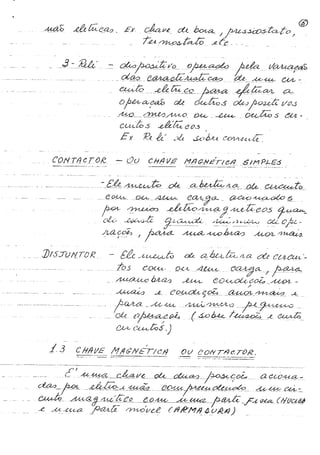 não elétricas. Ex chave de boia, pressostato,
termostato etc.
3- Relé - dispositivo operado pela variação
das características de um cir-
cuito elétrico para efetuar a
operação de outros dispositivos
no mesmo ou em outros cir-
cuitos elétricos
Ex Relé de sobre corrente
CONTACTOR - OU CHAVE MAGNÉTICA SIMPLES
- Elemento de abertura de circuito
com ou sem carga acionados
por meios eletromagnéticos quan
do existe grande número de ope-
rações, para manobras normais
DISJUNTOR - Elemento de abertura de circui-
tos com ou sem carga, para
manobras em condições nor-
mais e condições anormais e
para um número pequeno
de operações (sobre tensões e curto
circuitos.)
1.3 CHAVE MAGNÉTICA OU CONTACTOR.
É uma chave de duas posições aciona-
das por eletroimãs compreendendo um cir-
cuito magnético com uma parte fixa (NÚCLEO
e uma parte móvel (ARMADURA)